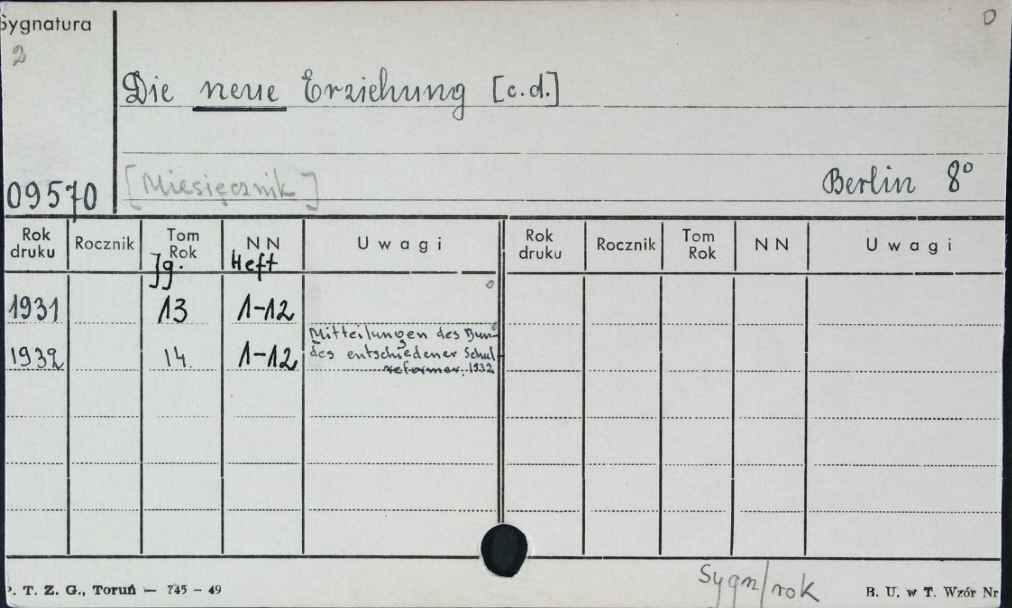 Sygnatura
2
Die neue Erziehung [c.d.]
[Miesięcznik]
Berlin 8°
09570
Rok druku Rocznik Tom Rok NN Uwagi Rok druku Rocznik Tom Rok NN Uwagi
Jg. Heft
1931 13 1-12
Mitteilungen des Bun-
1932 14. 1-12 des entschiedener Schul
reformer. 1932
Sygn/rok
P. T. Z. G., Toruń — 745 - 49
B. U. w T. Wzór Nr